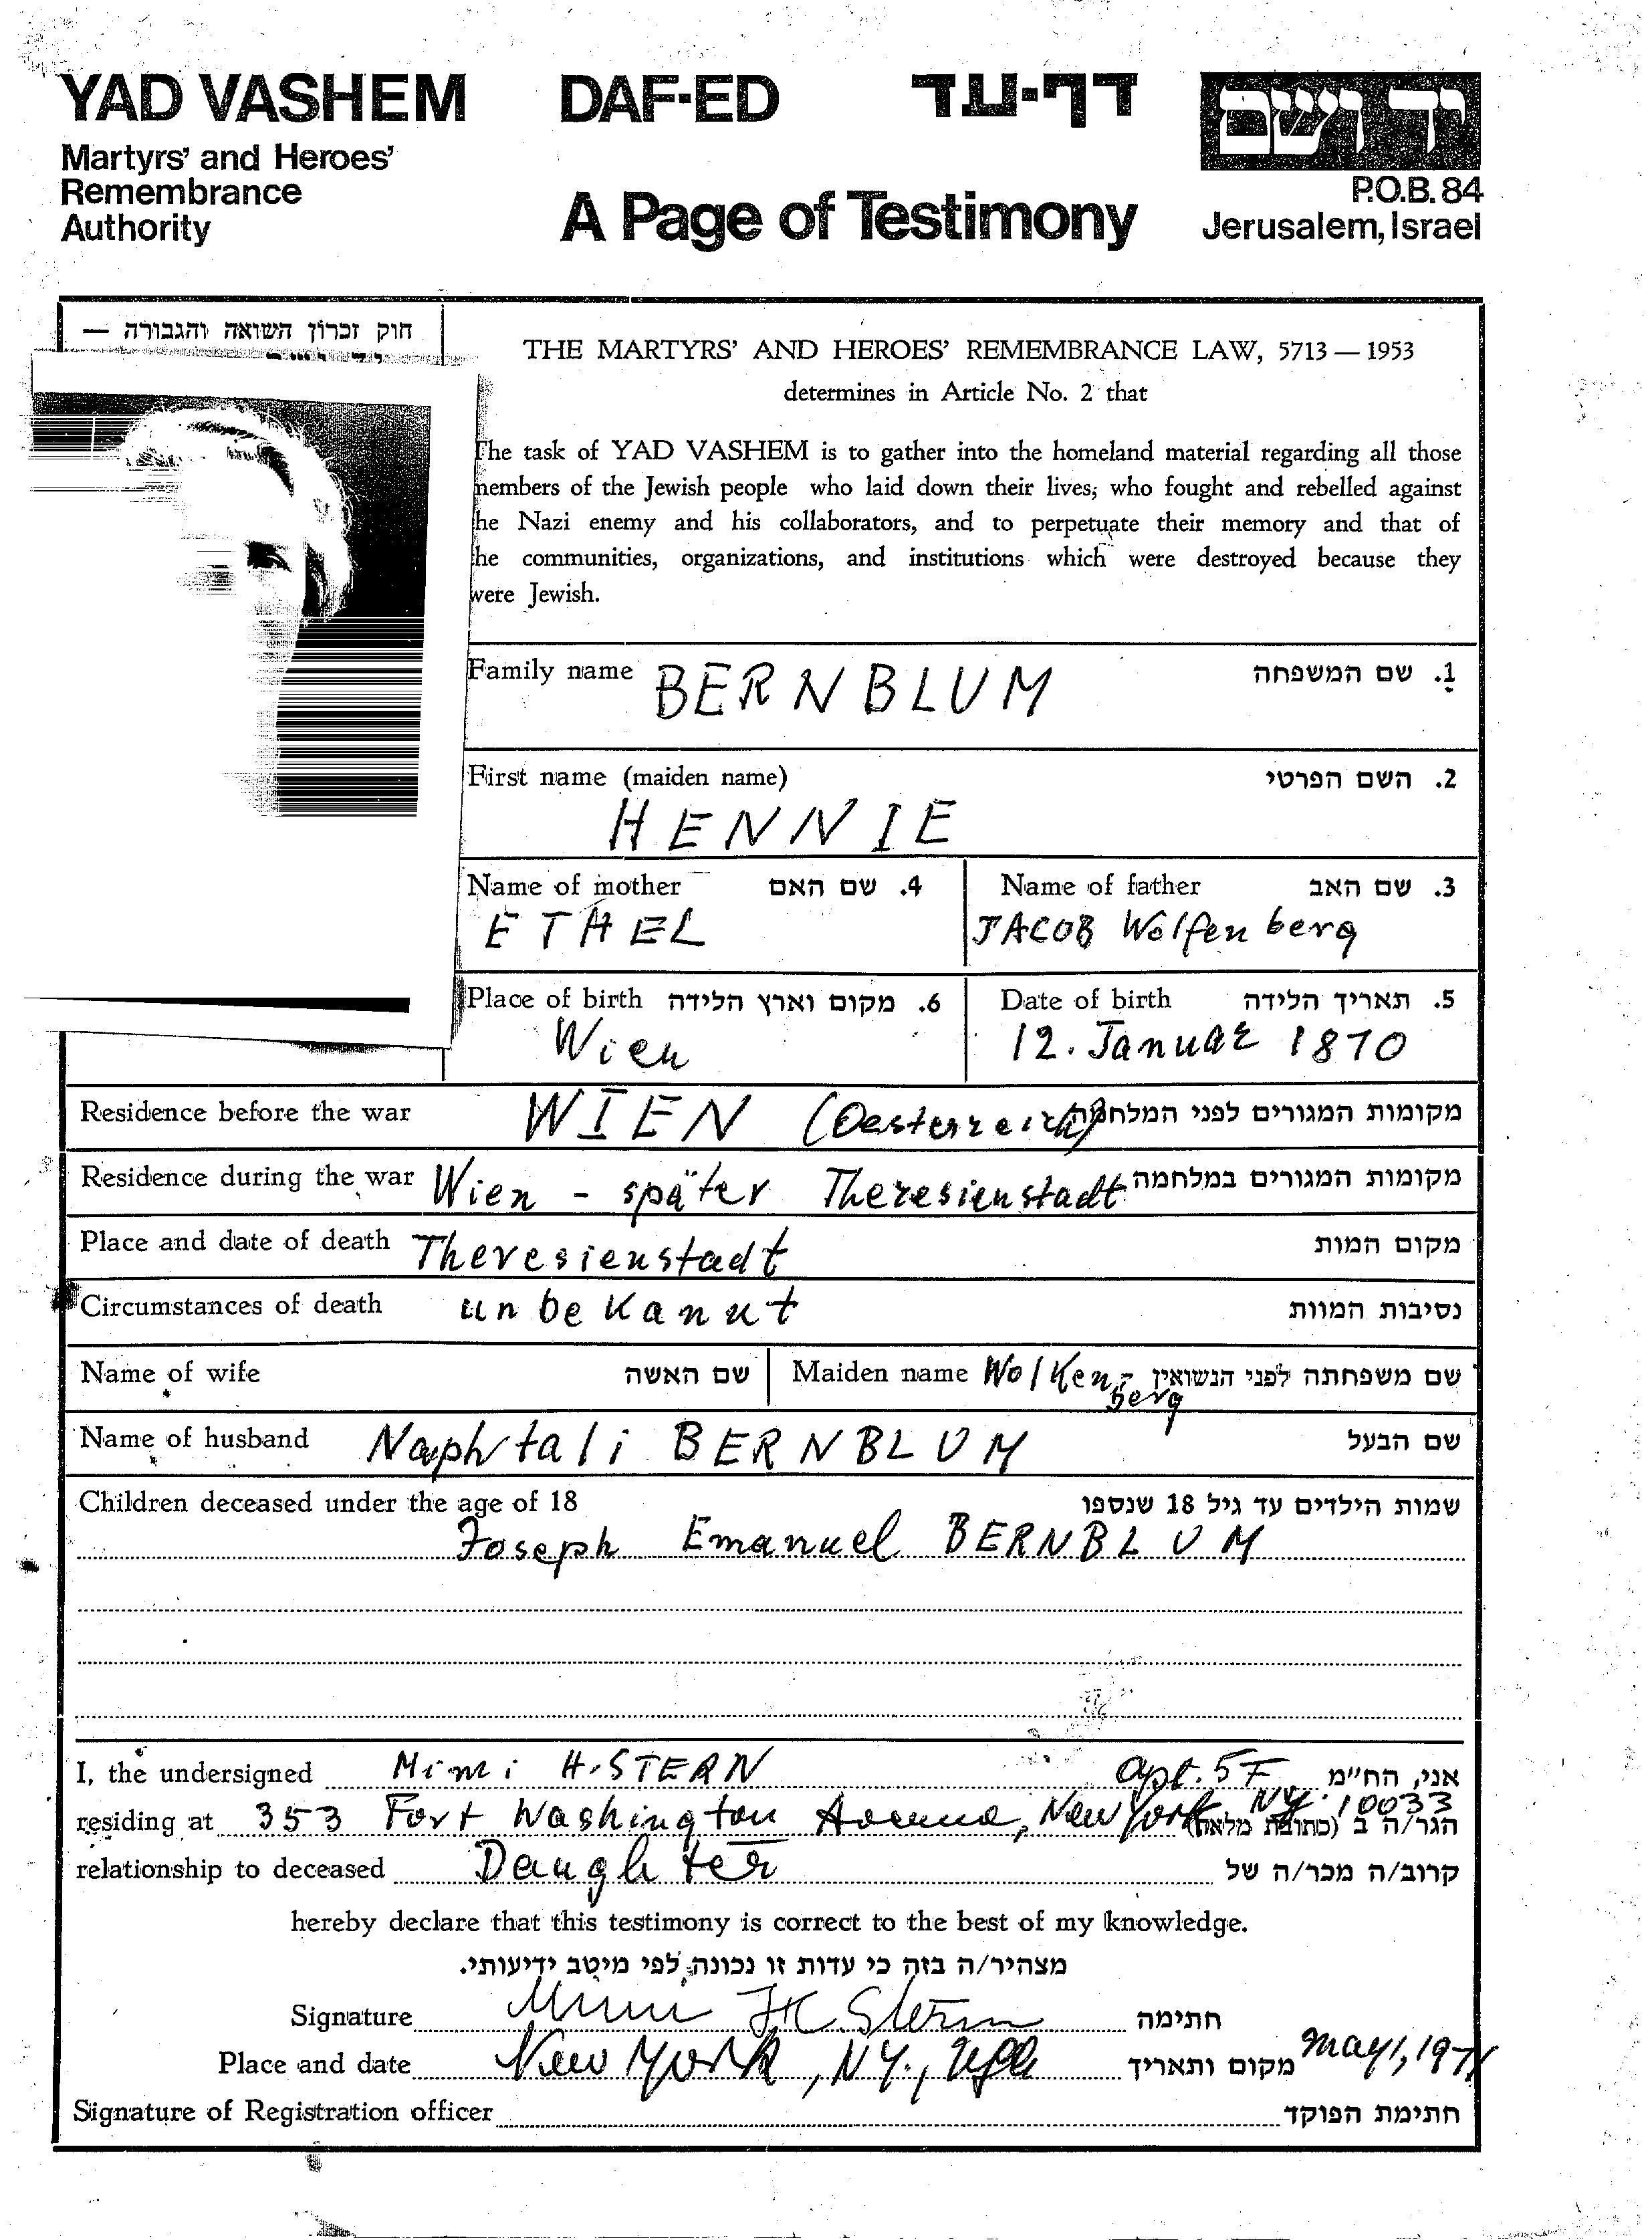 YAD VASHEM DAF-ED דף-עד יד ושם
Martyrs' and Heroes'
Remembrance
Authority
A Page of Testimony
P.O.B. 84
Jerusalem, Israel
חוק זכרון השואה והגבורה —
THE MARTYRS' AND HEROES' REMEMBRANCE LAW, 5713 — 1953
determines in Article No. 2 that
The task of YAD VASHEM is to gather into the homeland material regarding all those
members of the Jewish people who laid down their lives; who fought and rebelled against
the Nazi enemy and his collaborators, and to perpetuate their memory and that of
the communities, organizations, and institutions which were destroyed because they
were Jewish.
Family name BERNBLUM 1. שם המשפחה
First name (maiden name) 2. השם הפרטי
HENNIE
Name of mother 4. שם האם Name of father 3. שם האב
ETHEL JACOB Wolfenberg
Place of birth 6. מקום וארץ הלידה Date of birth 5. תאריך הלידה
Wien 12. Januar 1870
Residence before the war WIEN (Oesterreich) מקומות המגורים לפני המלחמה
Residence during the war Wien - später Theresienstadt מקומות המגורים במלחמה
Place and date of death Theresienstadt מקום המות
Circumstances of death unbekannt נסיבות המוות
Name of wife שם האשה Maiden name Wolken- שם משפחתה לפני הנשואין
berg
Name of husband Naphtali BERNBLUM שם הבעל
Children deceased under the age of 18 שמות הילדים עד גיל 18 שנספו
Joseph Emanuel BERNBLUM
I, the undersigned Mimi H. STERN apt. 5F אני, הח"מ
residing at 353 Fort Washington Avenue, New York NY. 10033 הגר/ה ב (כתובת מלאה)
relationship to deceased Daughter קרוב/ה מכר/ה של
hereby declare that this testimony is correct to the best of my knowledge.
מצהיר/ה בזה כי עדות זו נכונה לפי מיטב ידיעותי.
Signature Mimi H. Stern חתימה
Place and date New York, NY., USA מקום ותאריך May 1, 1971
Signature of Registration officer חתימת הפוקד